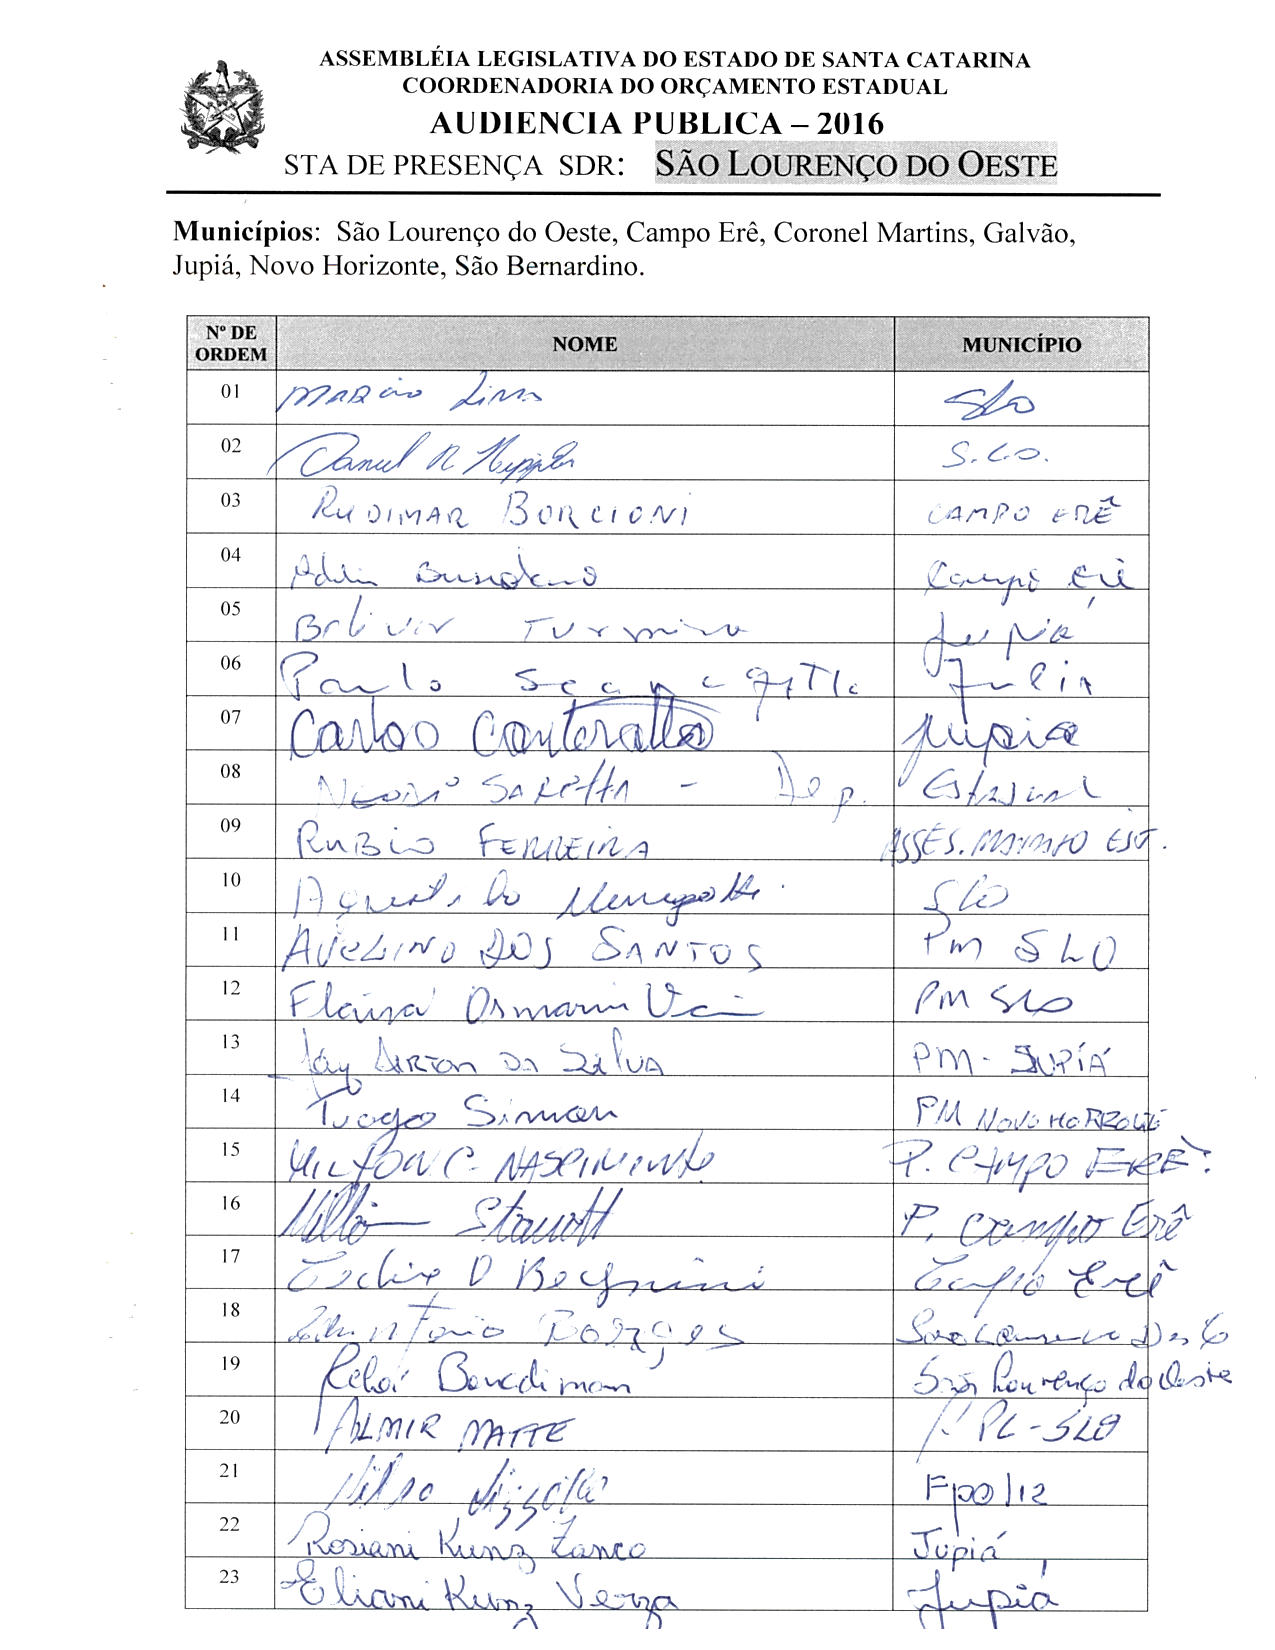 ASSEMBLÉIA LEGISLATIVA DO ESTADO DE SANTA CATARINA
COORDENADORIA DO ORÇAMENTO ESTADUAL
AUDIENCIA PUBLICA – 2016
STA DE PRESENÇA SDR: SÃO LOURENÇO DO OESTE
Municípios: São Lourenço do Oeste, Campo Erê, Coronel Martins, Galvão,
Jupiá, Novo Horizonte, São Bernardino.
Nº DE ORDEM NOME MUNICÍPIO
01 MARCIO Lima SLO
02 S.L.O.
03 RUDIMAR BORCIONI CAMPO ERÊ
04 Campo Erê
05 Bolivir Turmina Jupiá
06 Paulo
07 Carlos Jupiá
08 SARETTA - Dep. Estadual
09 RUBIO FERREIRA ASSES. EST.
10 SLO
11 AVELINO DOS SANTOS PM SLO
12 PM SLO
13 AIRTON DA SILVA PM - JUPIÁ
14 Tiago Simon PM NOVO HORIZONTE
15 MILTON C. NASCIMENTO P. CAMPO ERÊ
16 P. Campo Erê
17 Campo Erê
18 Borges
19 São Lourenço do Oeste
20 ALMIR MATTE PL - SLO
21 Nilso
22 Rosiani Kunz Zanco Jupiá
23 Eliani Kunz Verza Jupiá